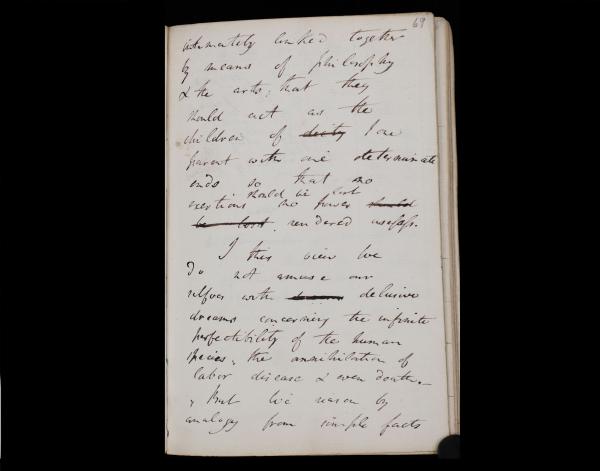 69
intimately linked together
by means of philosophy
& the arts; that they
should act as the
children of deity / one
parent with one determinate
ends so that no
should be lost
exertions no power should
be lost, rendered useless.
In this view we
do not amuse our
selves with delusive
dreams concerning the infinite
perfectibility of the human
species, the annihilation of
labor disease & even death. _
But we reason by
analogy from simple facts